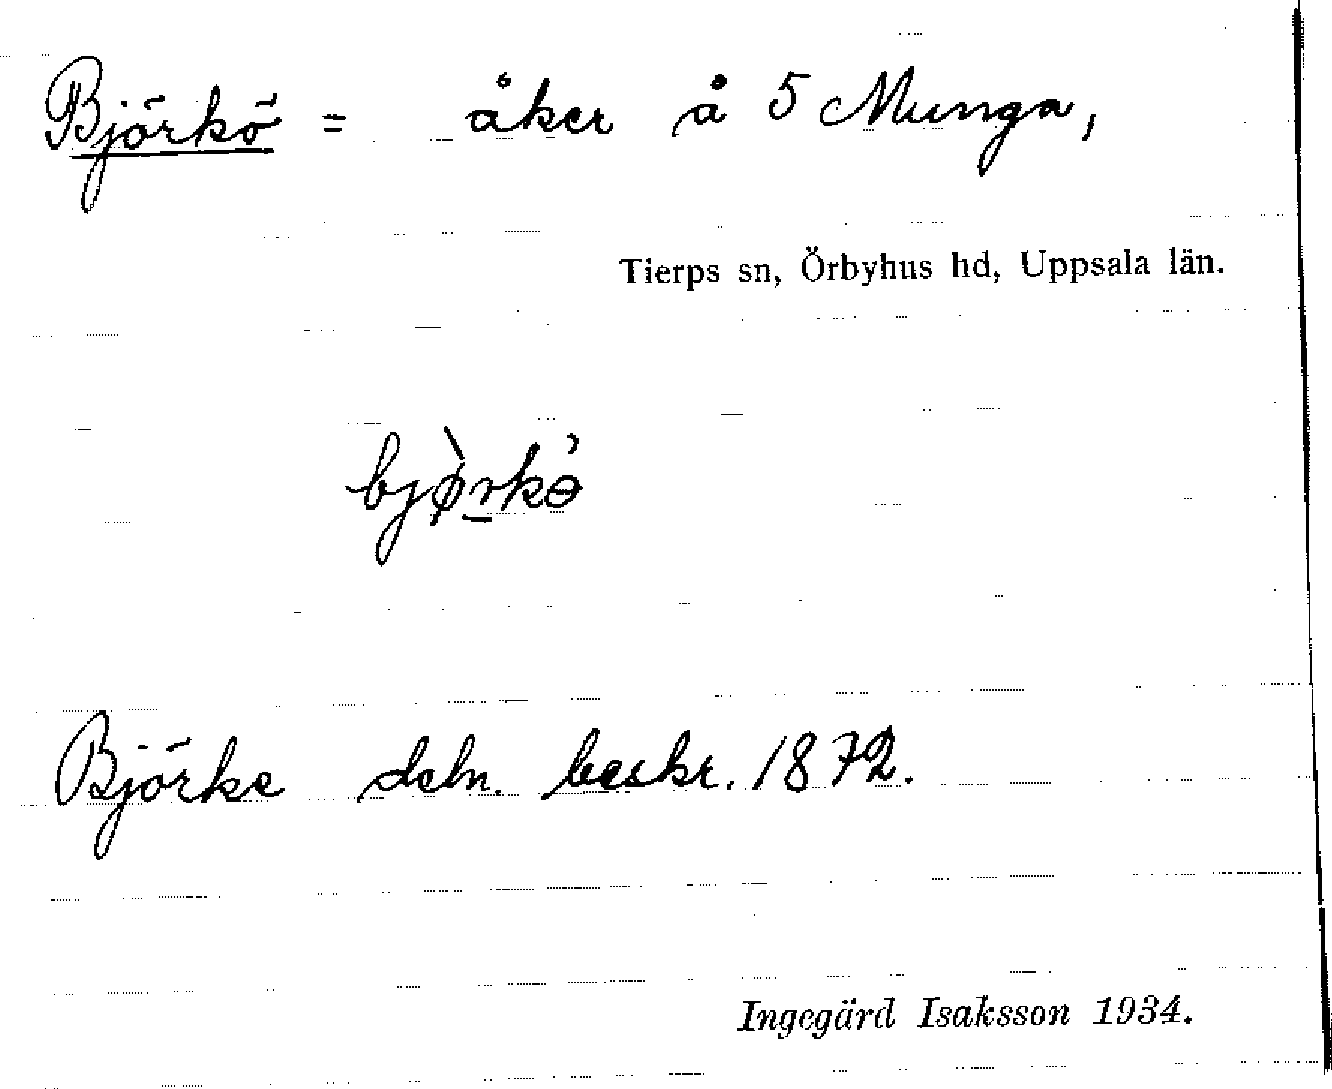 Björkö = åker å 5 Munga,
Tierps sn, Örbyhus hd, Uppsala län.
bjø̀rkö
Björke deln. beskr. 1872.
Ingegärd Isaksson 1934.